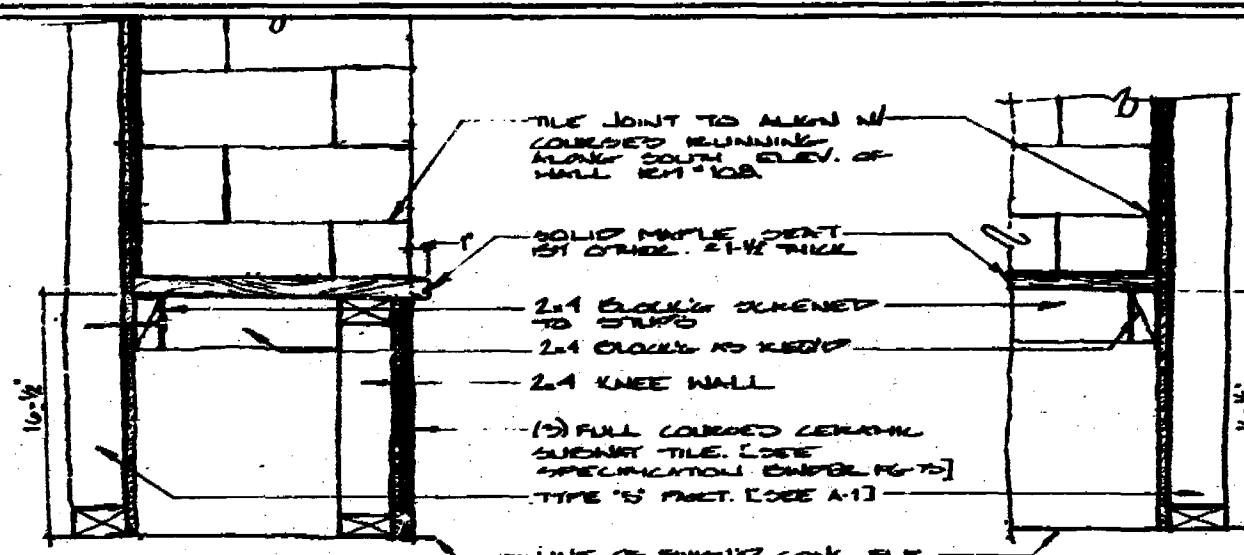 TILE JOINT TO ALIGN W/
COURSES RUNNING
ALONG SOUTH ELEV. OF
WALL RM #108
1"
SOLID MAPLE SEAT
BY OTHER. 1-1/2 THICK
2x4 BLOCK'G SCREWED
TO STUDS
2x4 BLOCK'G AS REQ'D
2x4 KNEE WALL
16-1/2"
(3) FULL COURSES CERAMIC
SUBWAY TILE. [SEE
SPECIFICATION BINDER PG-75]
TYPE "S" PART. [SEE A-1]
LINE OF FINISH'D CONC.